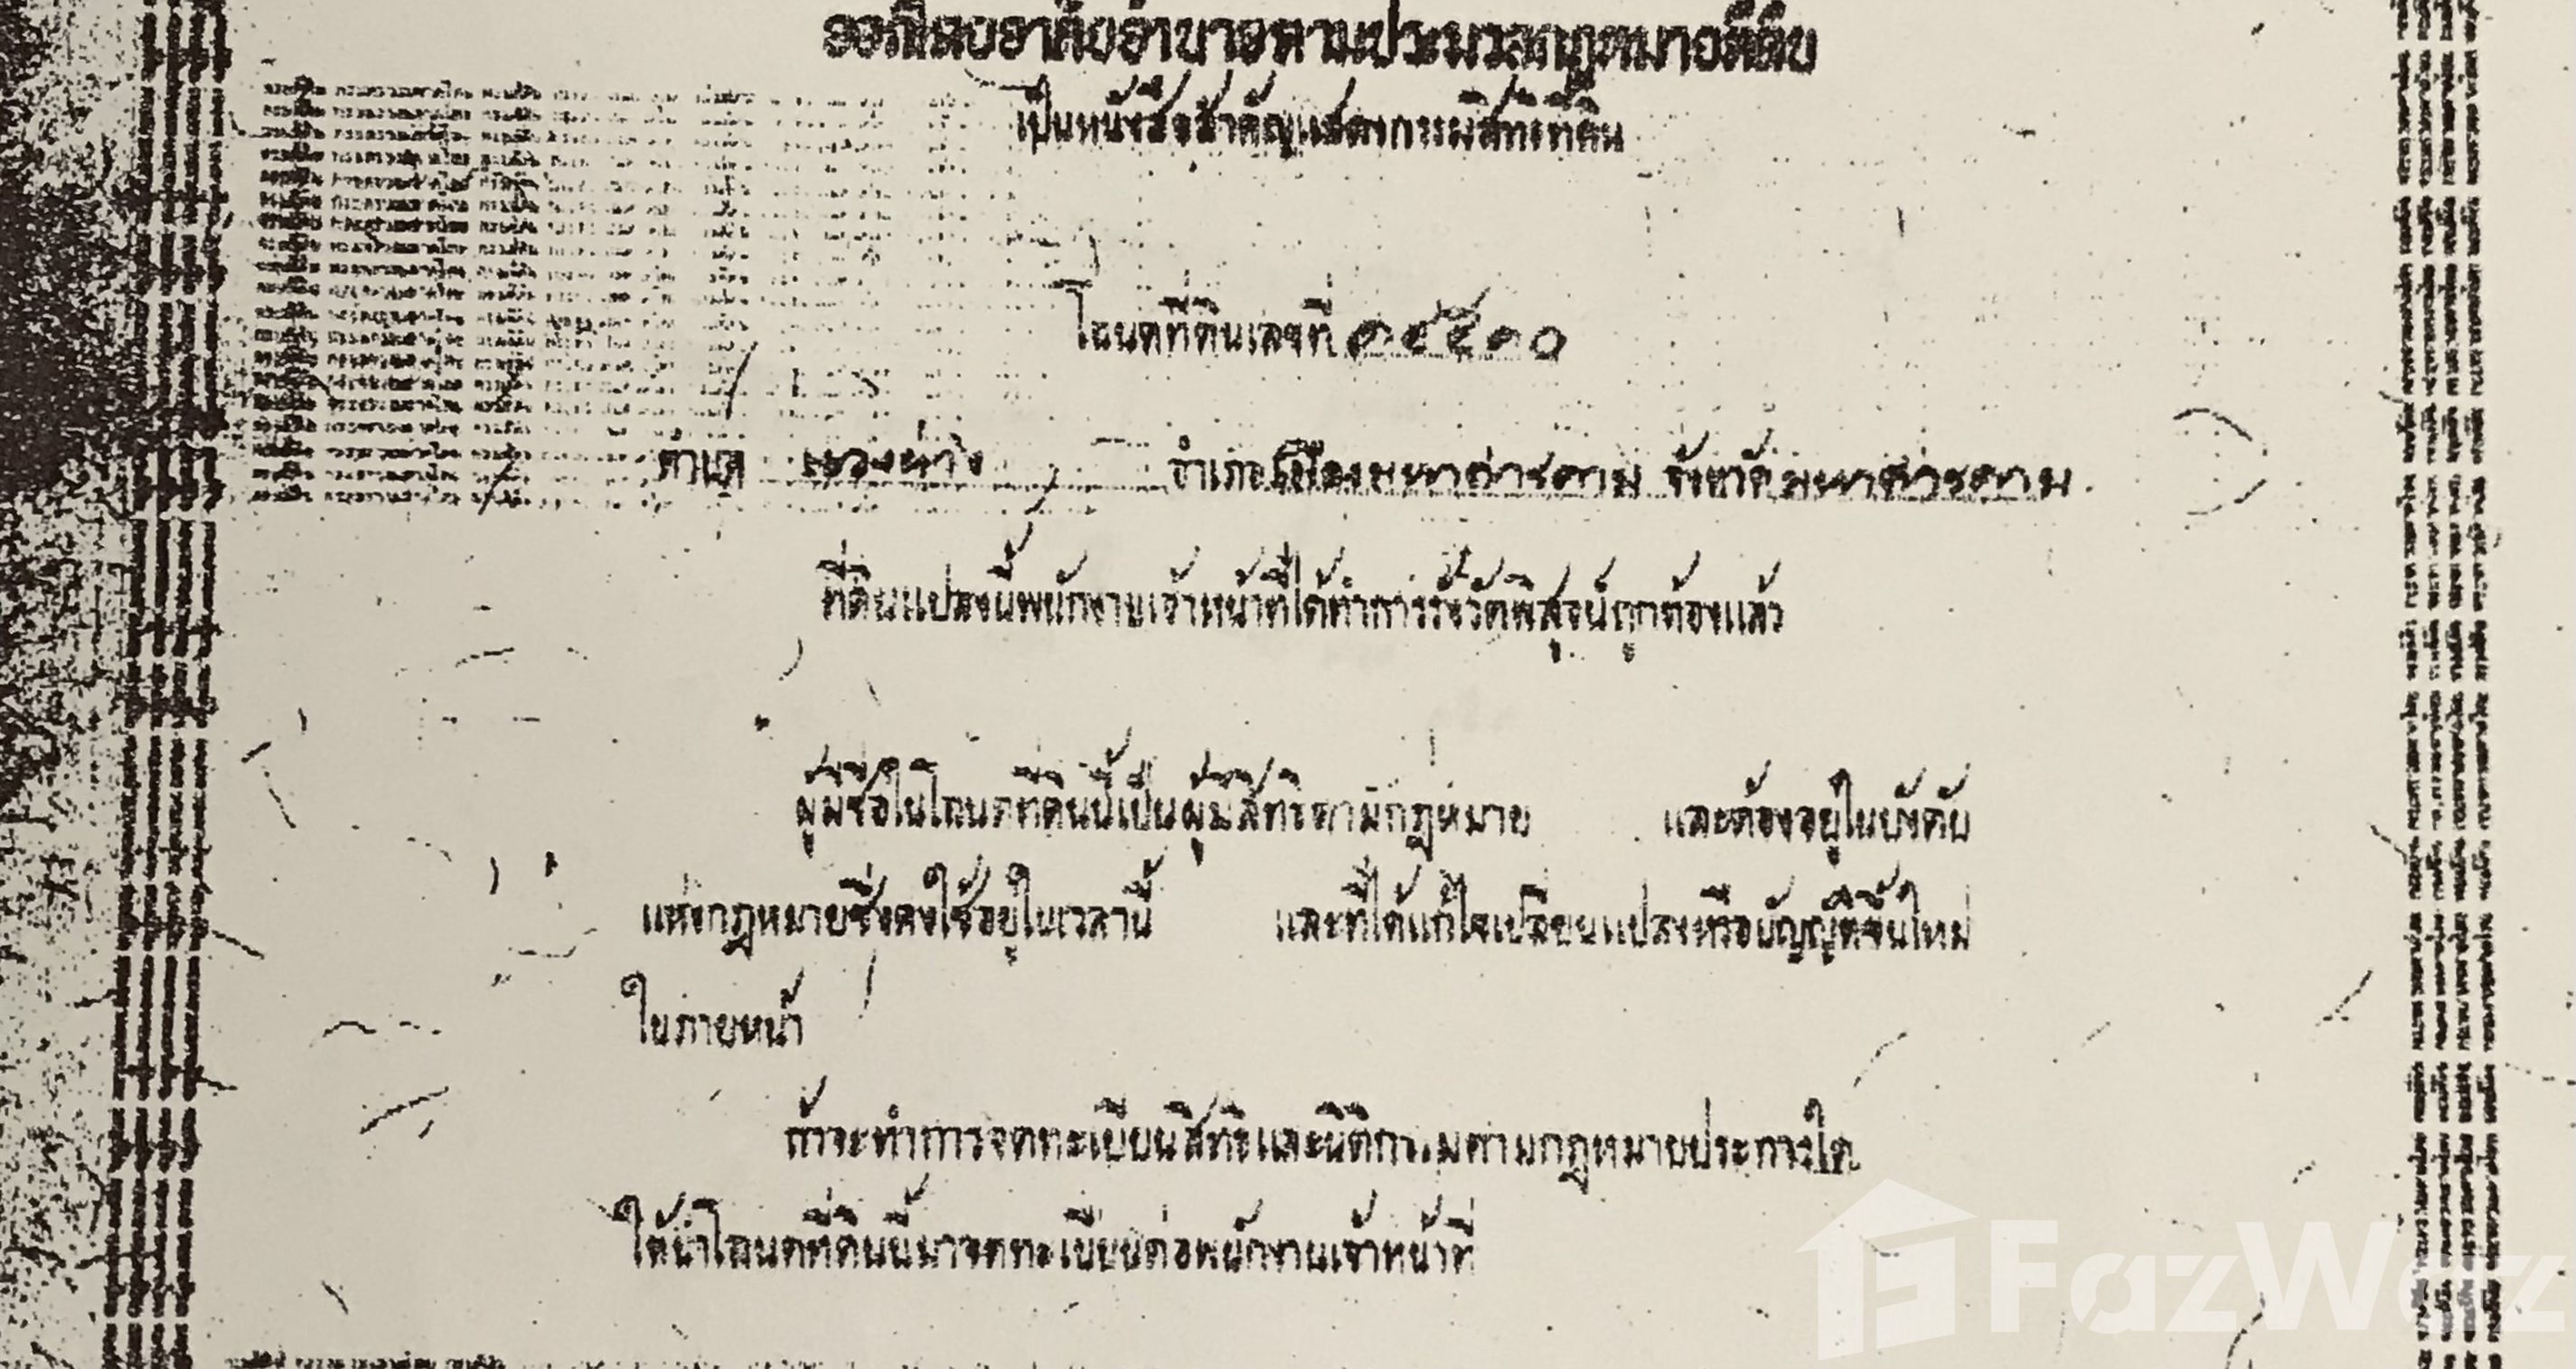 ออกโดยอาศัยอำนาจตามประมวลกฎหมายที่ดิน
เป็นหนังสือสำคัญแสดงกรรมสิทธิ์ที่ดิน
โฉนดที่ดินเลขที่
ตำบล แวงน่าง อำเภอเมืองมหาสารคาม จังหวัดมหาสารคาม
ที่ดินแปลงนี้พนักงานเจ้าหน้าที่ได้ทำการรังวัดพิสูจน์ถูกต้องแล้ว
ผู้มีชื่อในโฉนดที่ดินนี้เป็นผู้มีสิทธิตามกฎหมาย และต้องอยู่ในบังคับ
แห่งกฎหมายซึ่งคงใช้อยู่ในเวลานี้ และที่ได้แก้ไขเปลี่ยนแปลงหรือบัญญัติขึ้นใหม่
ในภายหน้า
ถ้าจะทำการจดทะเบียนสิทธิและนิติกรรมตามกฎหมายประการใด
ให้นำโฉนดที่ดินนี้มาจดทะเบียนต่อพนักงานเจ้าหน้าที่
FazWaz